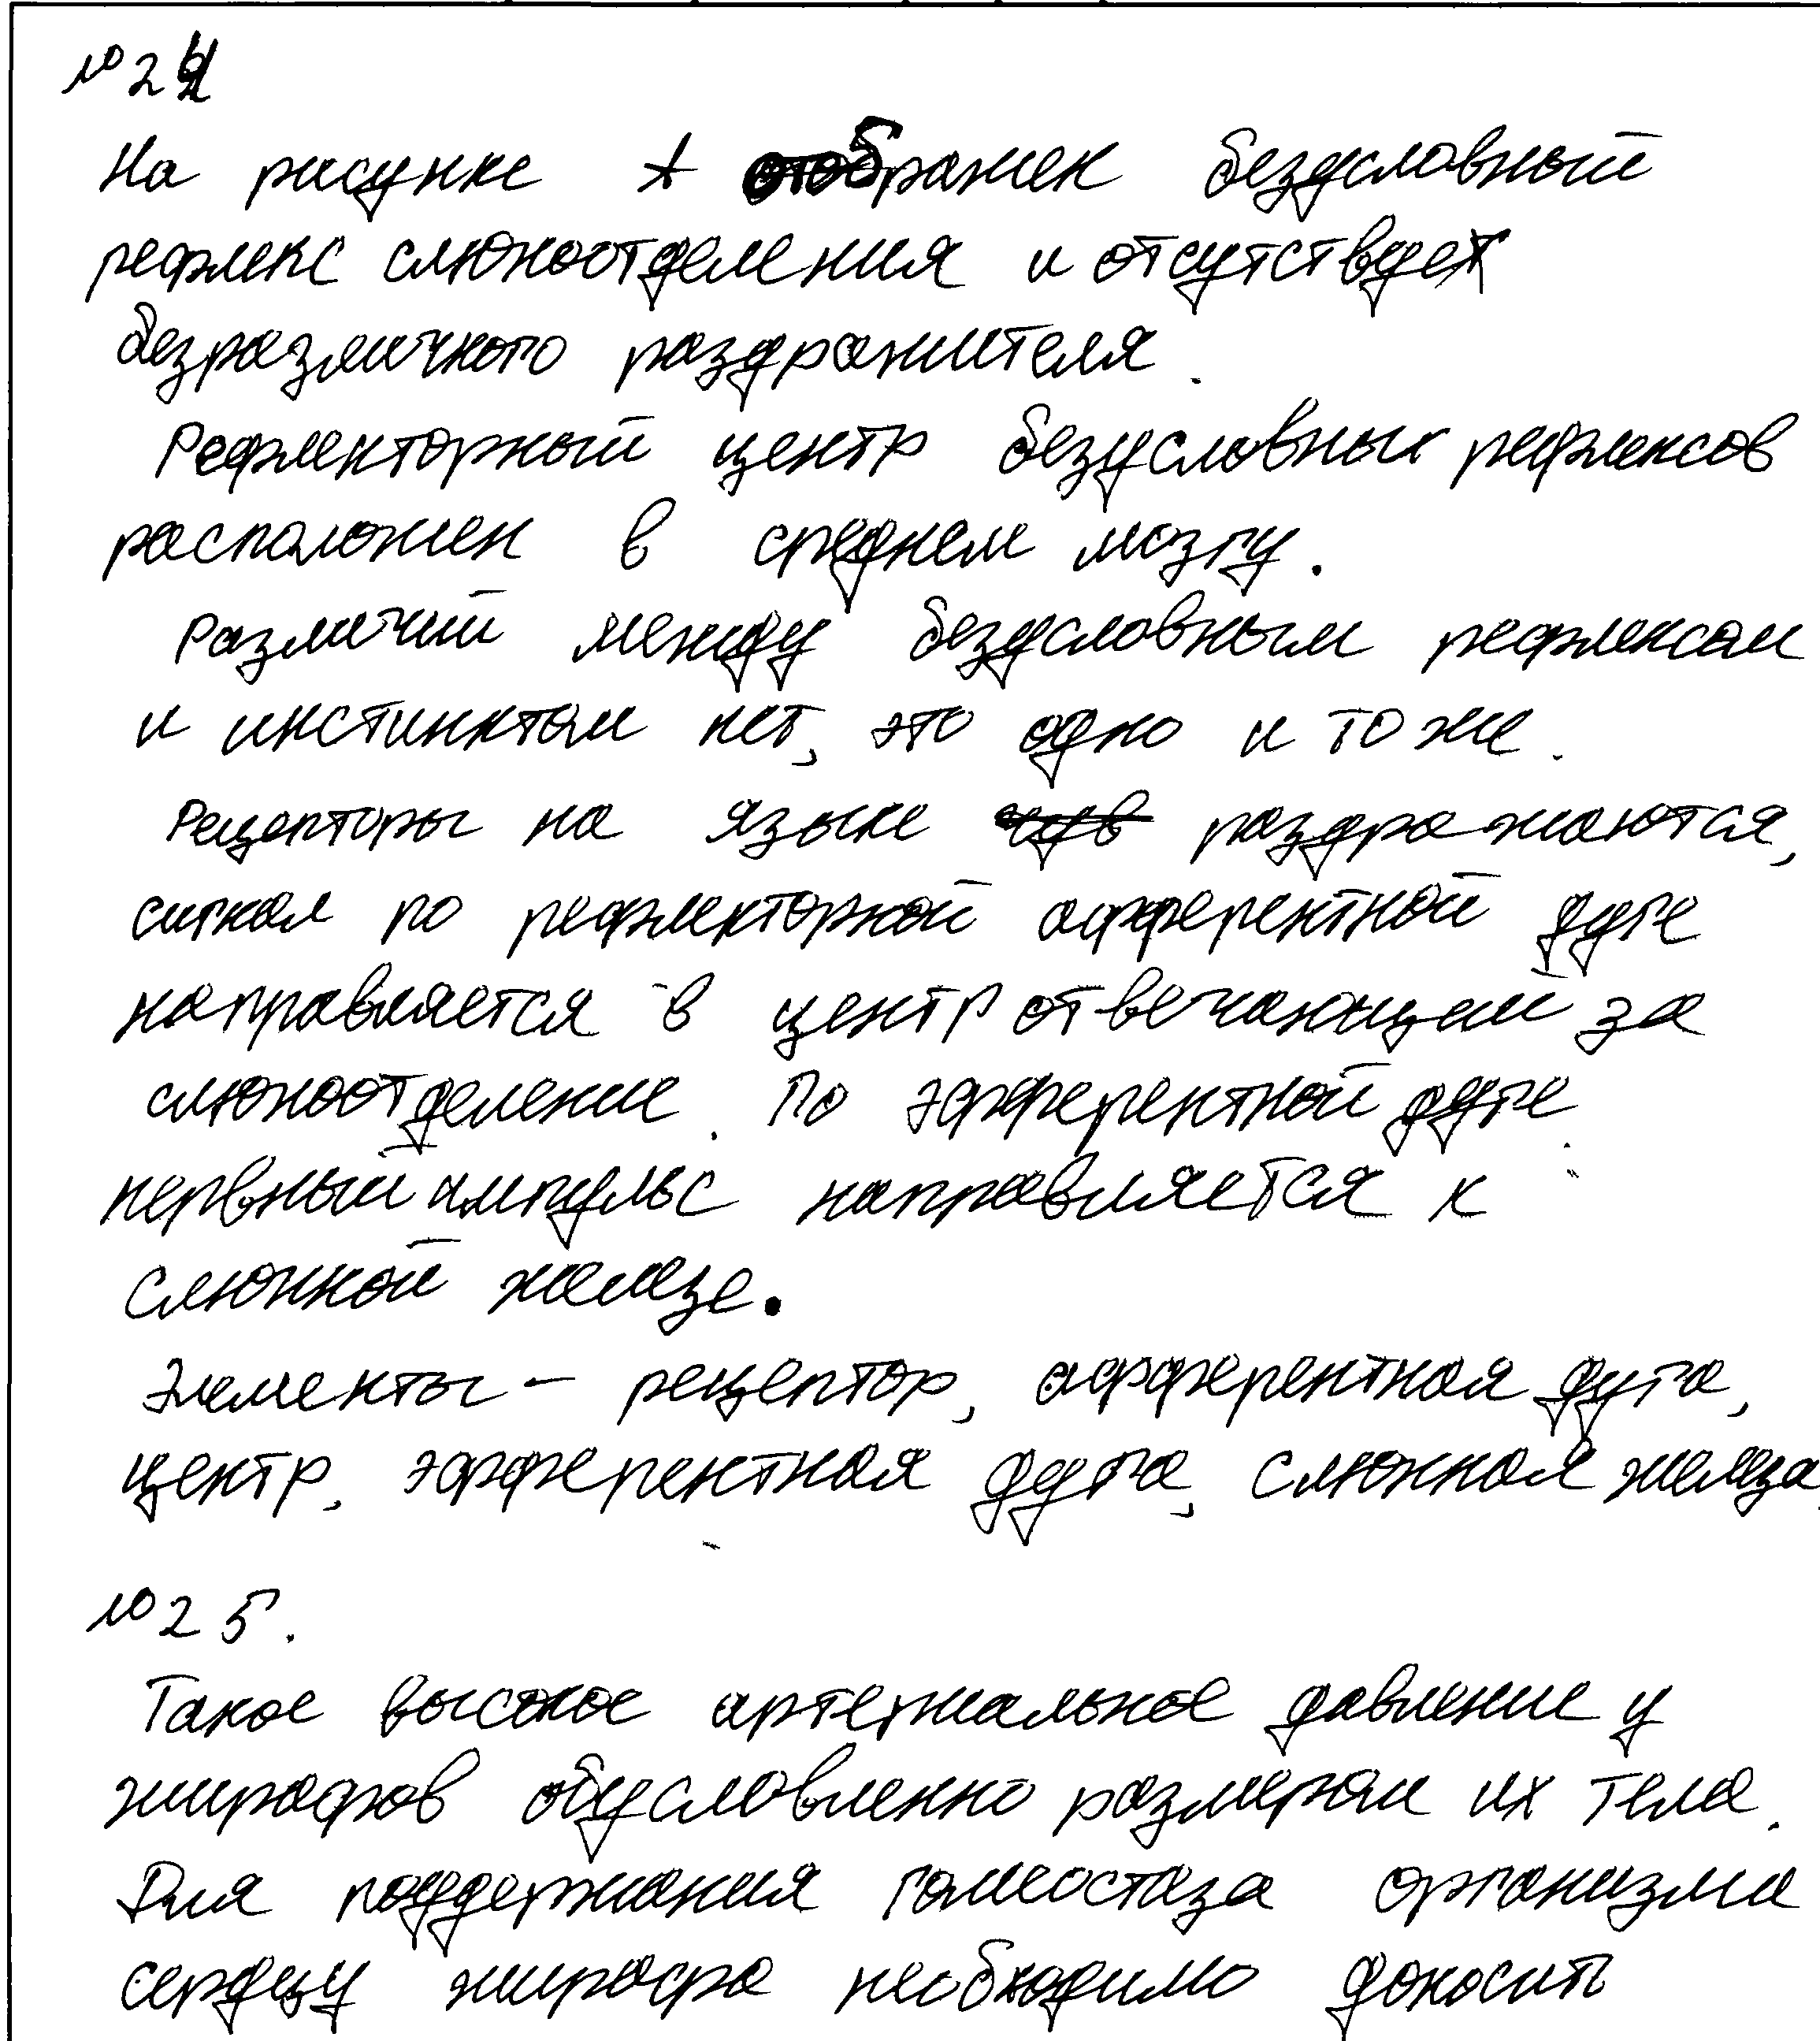 № 24
На рисунке А отображен безусловный
рефлекс слюноотделения и отсутствует
безразличного раздражителя.
Рефлекторный центр безусловных рефлексов
расположен в среднем мозгу.
Различий между безусловным рефлексом
и инстинктом нет, это одно и то же.
Рецепторы на языке раздражаются,
сигнал по рефлекторной афферентной дуге
направляется в центр отвечающий за
слюноотделение. По эфферентной дуге
нервный импульс направляется к
слюнной железе.
Элементы - рецептор, афферентная дуга,
центр, эфферентная дуга, слюнная железа.
№ 25.
Такое высокое артериальное давление у
жирафов обусловленно размерам их тела.
Для поддержания гомеостаза организма
сердцу жирафа необходимо доносить